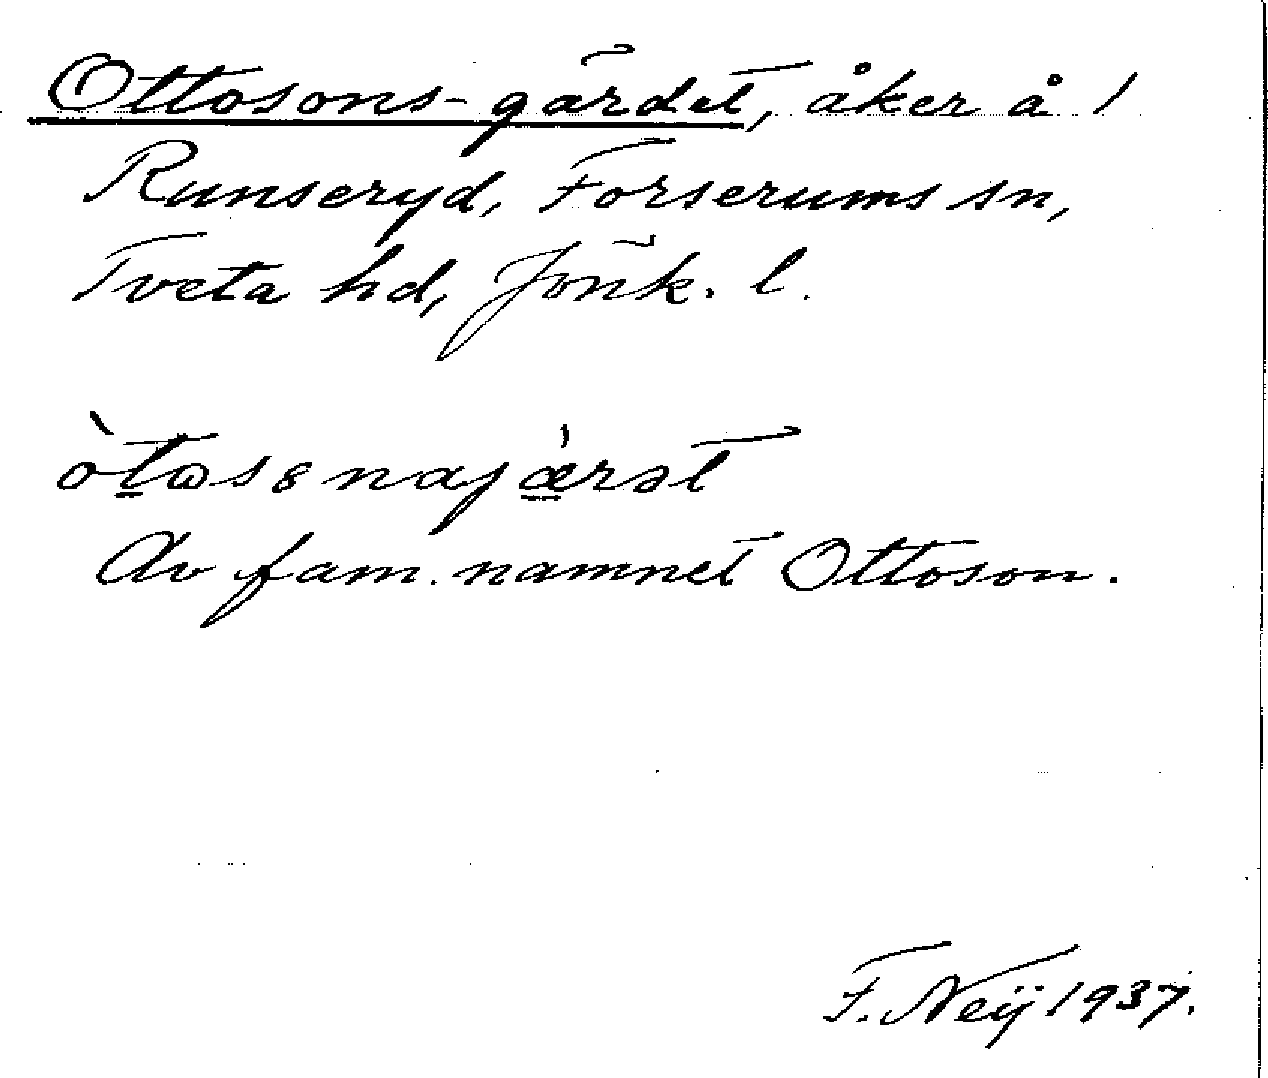 Ottosons-gärdet, åker å 1
Runseryd, Forserums sn,
Tveta hd, Jönk. l.
òtɷsꞩnajæ̀rət
Av fam. namnet Ottoson.
F. Neij 1937.